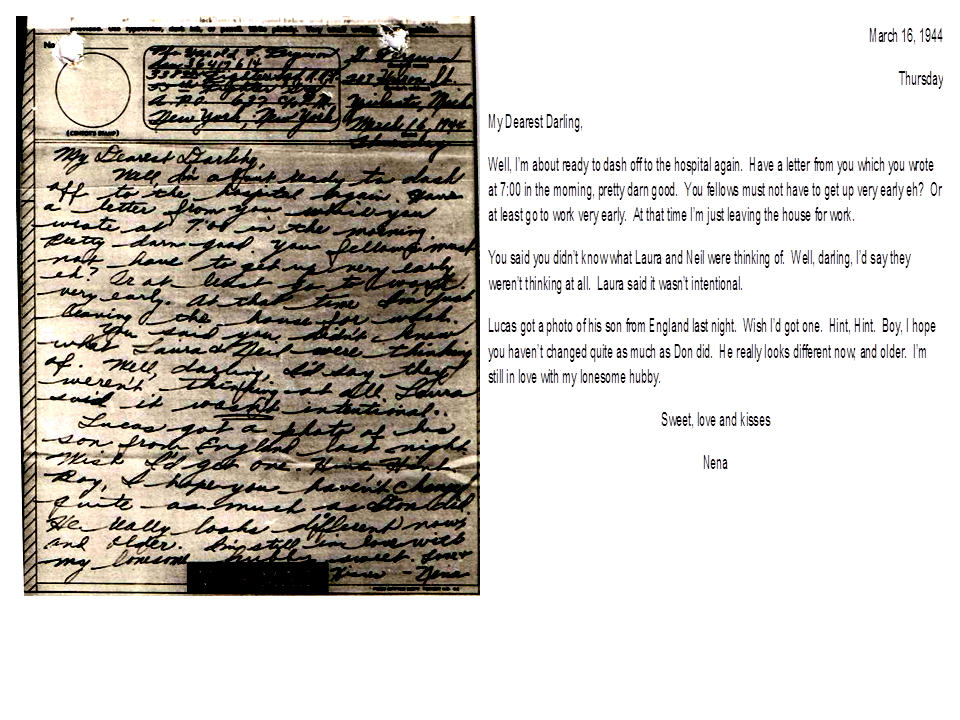 No.
(CENSOR'S STAMP)
New York, New York
March 16, 1944
Thursday
My Dearest Darling,
Well, I'm about ready to dash
off to the hospital again. Have
a letter from you which you
wrote at 7:00 in the morning
pretty darn good. You fellows must
not have to get up very early
eh? Or at least go to work
very early. At that time I'm just
leaving the house for work.
You said you didn't know
what Laura & Neil were thinking
of. Well, darling, I'd say they
weren't thinking at all. Laura
said it wasn't intentional.
Lucas got a photo of his
son from England last night.
Wish I'd got one. Hint, Hint.
Boy, I hope you haven't changed
quite as much as Don did.
He really looks different now,
and older. I'm still in love with
my lonesome hubby. Sweet, love &
kisses - Nena
March 16, 1944
Thursday
My Dearest Darling,
Well, I'm about ready to dash off to the hospital again. Have a letter from you which you wrote
at 7:00 in the morning, pretty darn good. You fellows must not have to get up very early eh? Or
at least go to work very early. At that time I'm just leaving the house for work.
You said you didn't know what Laura and Neil were thinking of. Well, darling, I'd say they
weren't thinking at all. Laura said it wasn't intentional.
Lucas got a photo of his son from England last night. Wish I'd got one. Hint, Hint. Boy, I hope
you haven't changed quite as much as Don did. He really looks different now, and older. I'm
still in love with my lonesome hubby.
Sweet, love and kisses
Nena